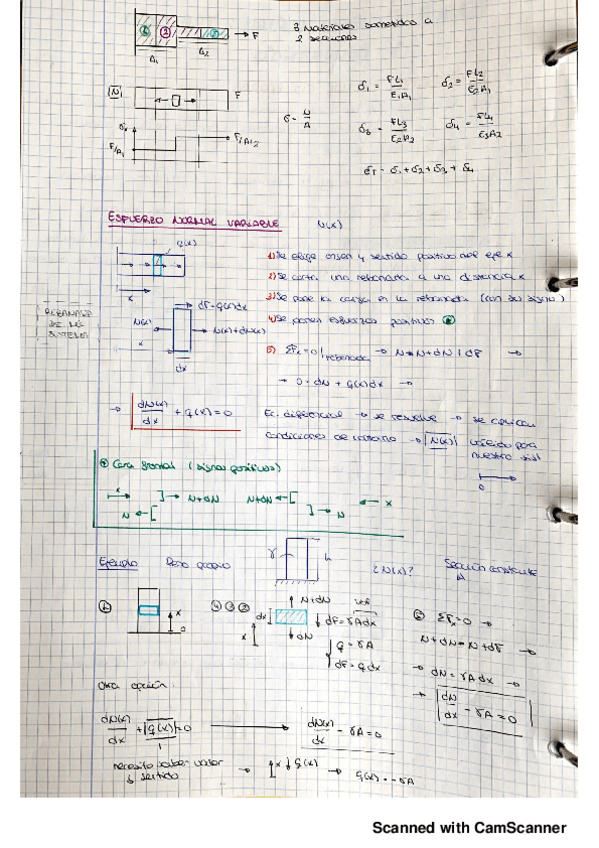 3 Materiales sometidos a
2 secciones
F
A₁ A₂
|N| F
σ = N/A
σ₁ = FL₁/E₁A₁ σ₂ = FL₂/E₂A₁
σ₃ = FL₃/E₂A₂ σ₄ = FL₄/E₃A₂
σT = σ₁+σ₂+σ₃+σ₄
σx
F/A₁ F/A₂
ESFUERZO NORMAL VARIABLE N(x)
q(x)
1) Se elige origen y sentido positivo del eje x
2) Se corta una rebanada a una distancia x
3) Se pone la carga en la rebanada (con su signo)
4) Se ponen esfuerzos positivos
5) ΣFx = 0 | rebanada → N = N + dN + dF →
→ 0 = dN + q(x)dx →
x
dF = q(x)dx
REBANADA
DE MI
SISTEMA
N(x) N(x)+dN(x)
x
dx
→ dN(x)/dx + q(x) = 0 Ec. diferencial → se resuelve → se aplican
condiciones de contorno → |N(x)| válido para
nuestro sist
0
Cara frontal (signos positivos)
x N+dN N+dN x
N N
Ejemplo Peso propio γ h ¿N(x)? Sección constante
A
x
0
N+dN
dx dF = γAdx
x dN q = γA
dF = qdx
ΣFx = 0 →
N+dN = N+dF →
→ dN = γAdx →
→ dN/dx - γA = 0
Otra opción:
dN(x)/dx + |q(x)| = 0 → dN(x)/dx - γA = 0
necesito saber valor
y sentido → x q(x) → q(x) = -γA
Scanned with CamScanner